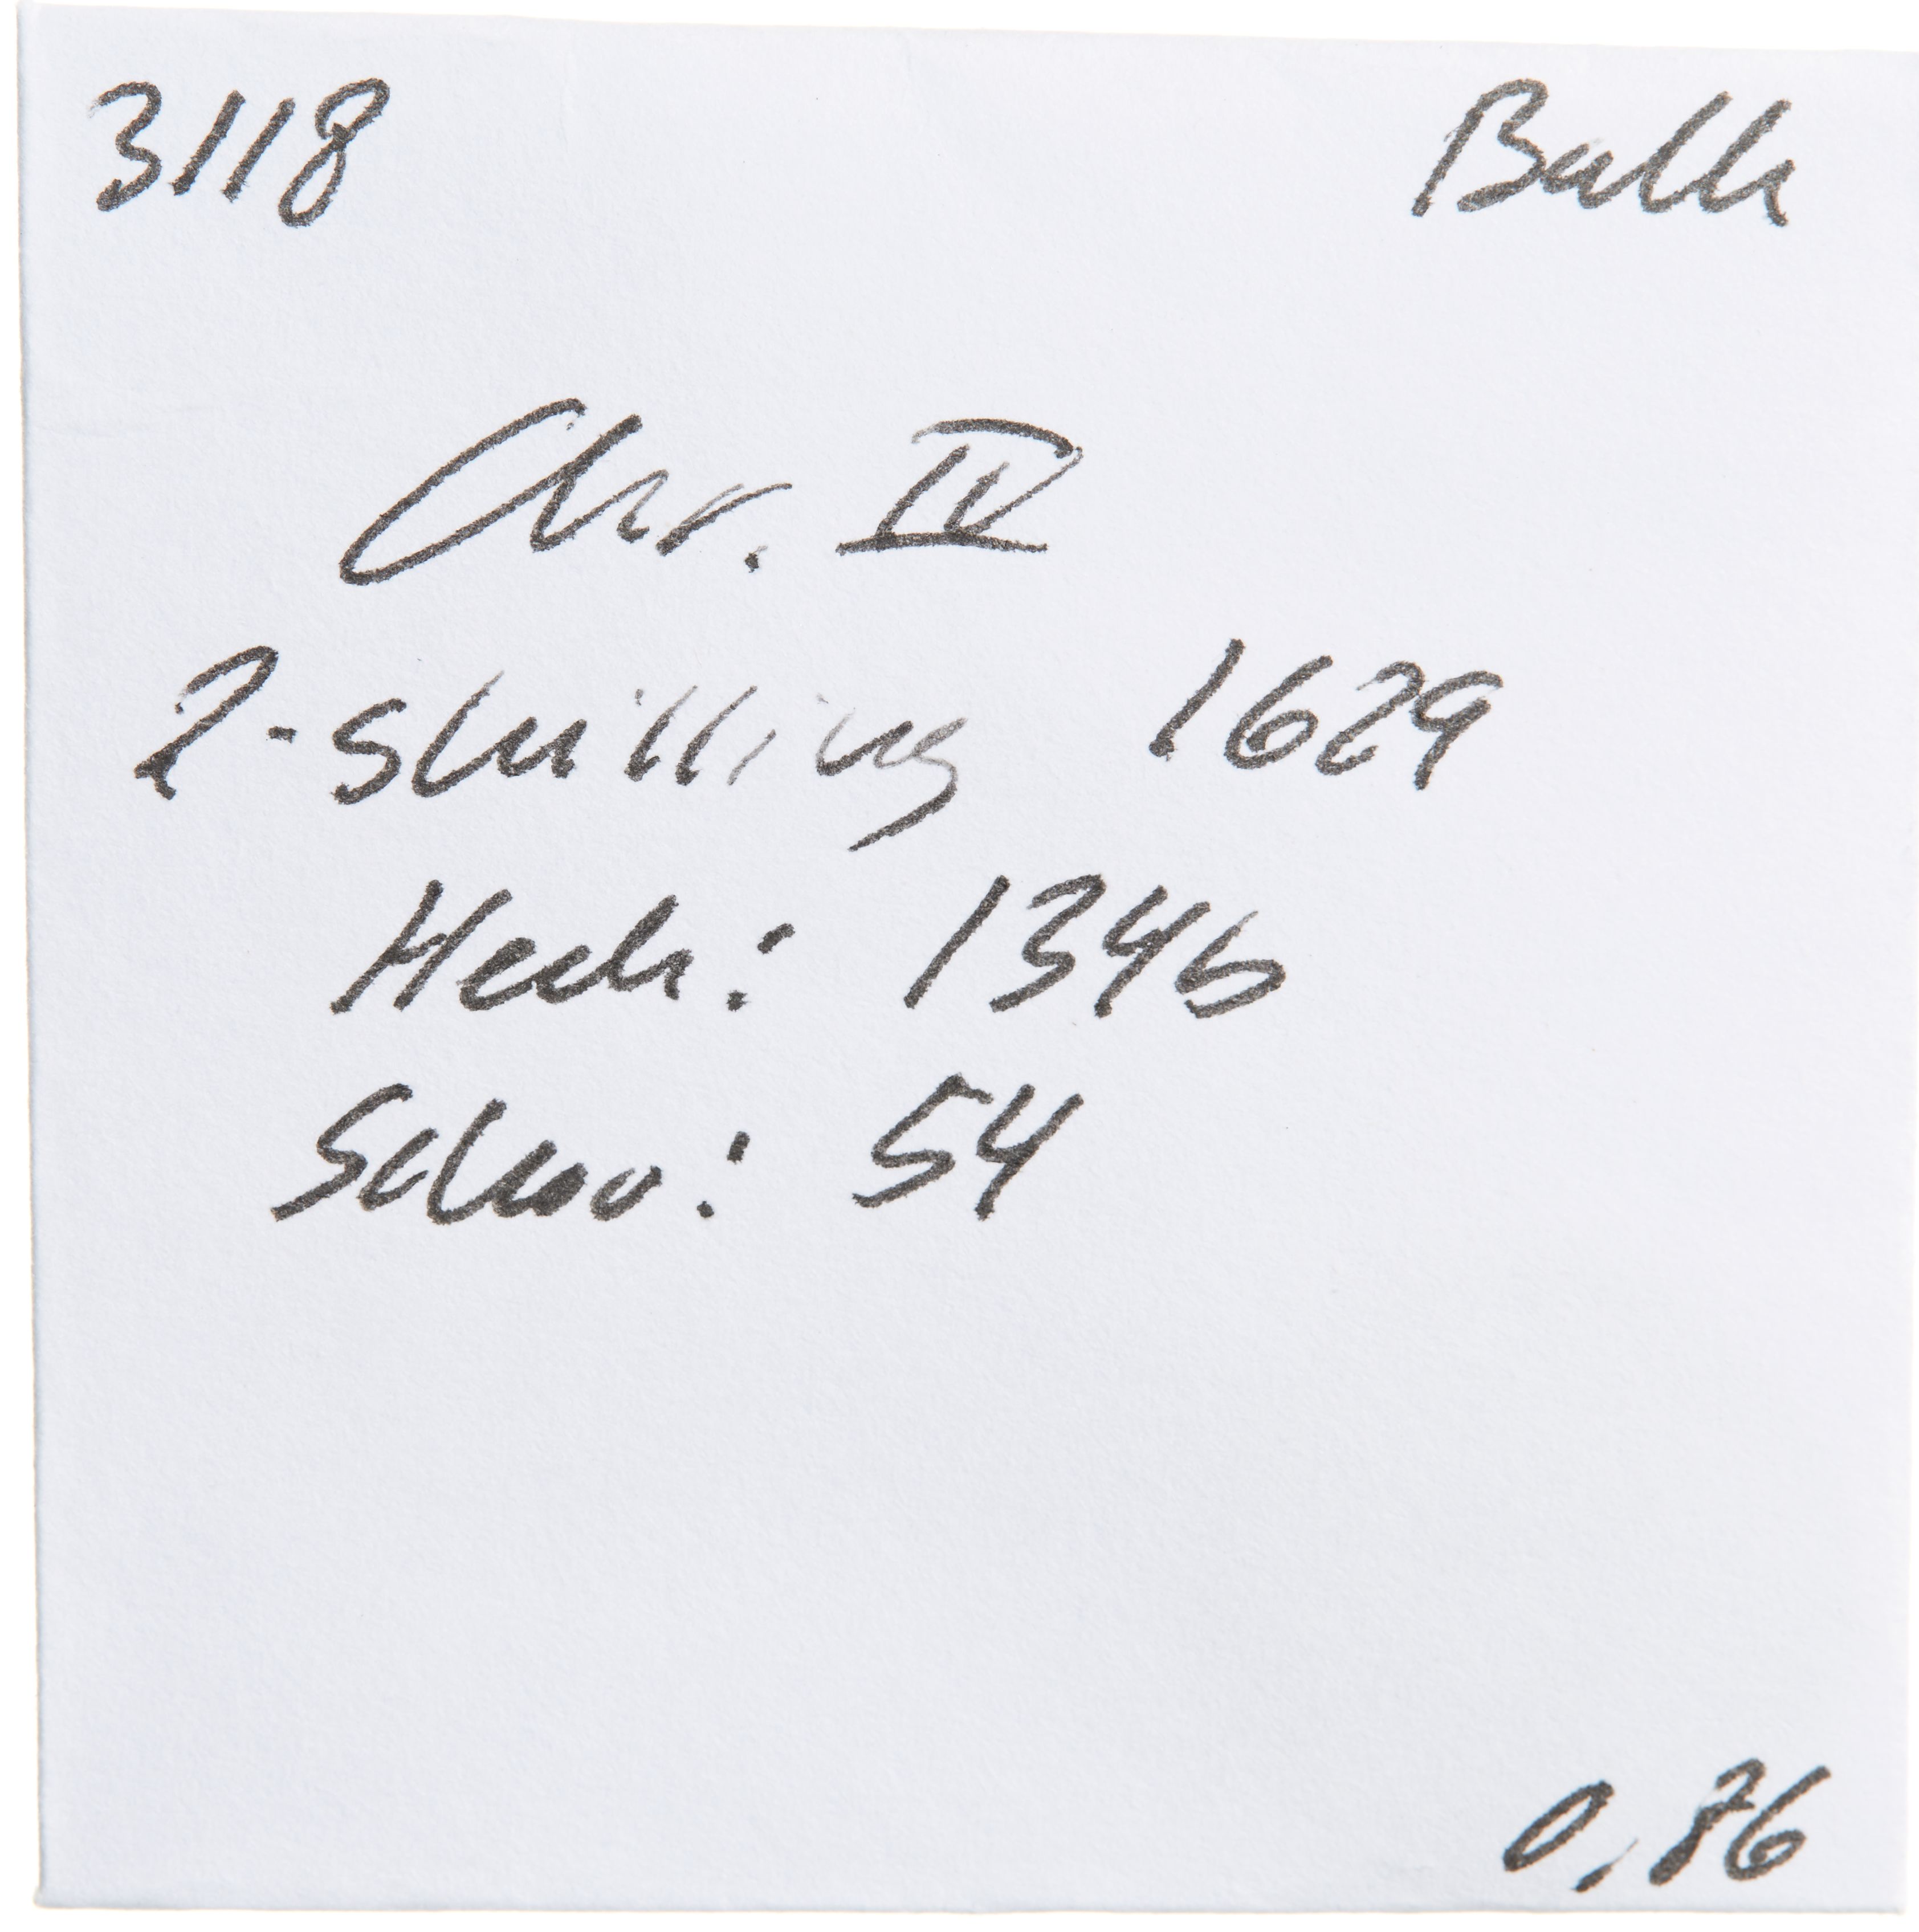 3118
Chr. IV
2-skilling 1629
Hede: 134b
Schou: 54
0,86